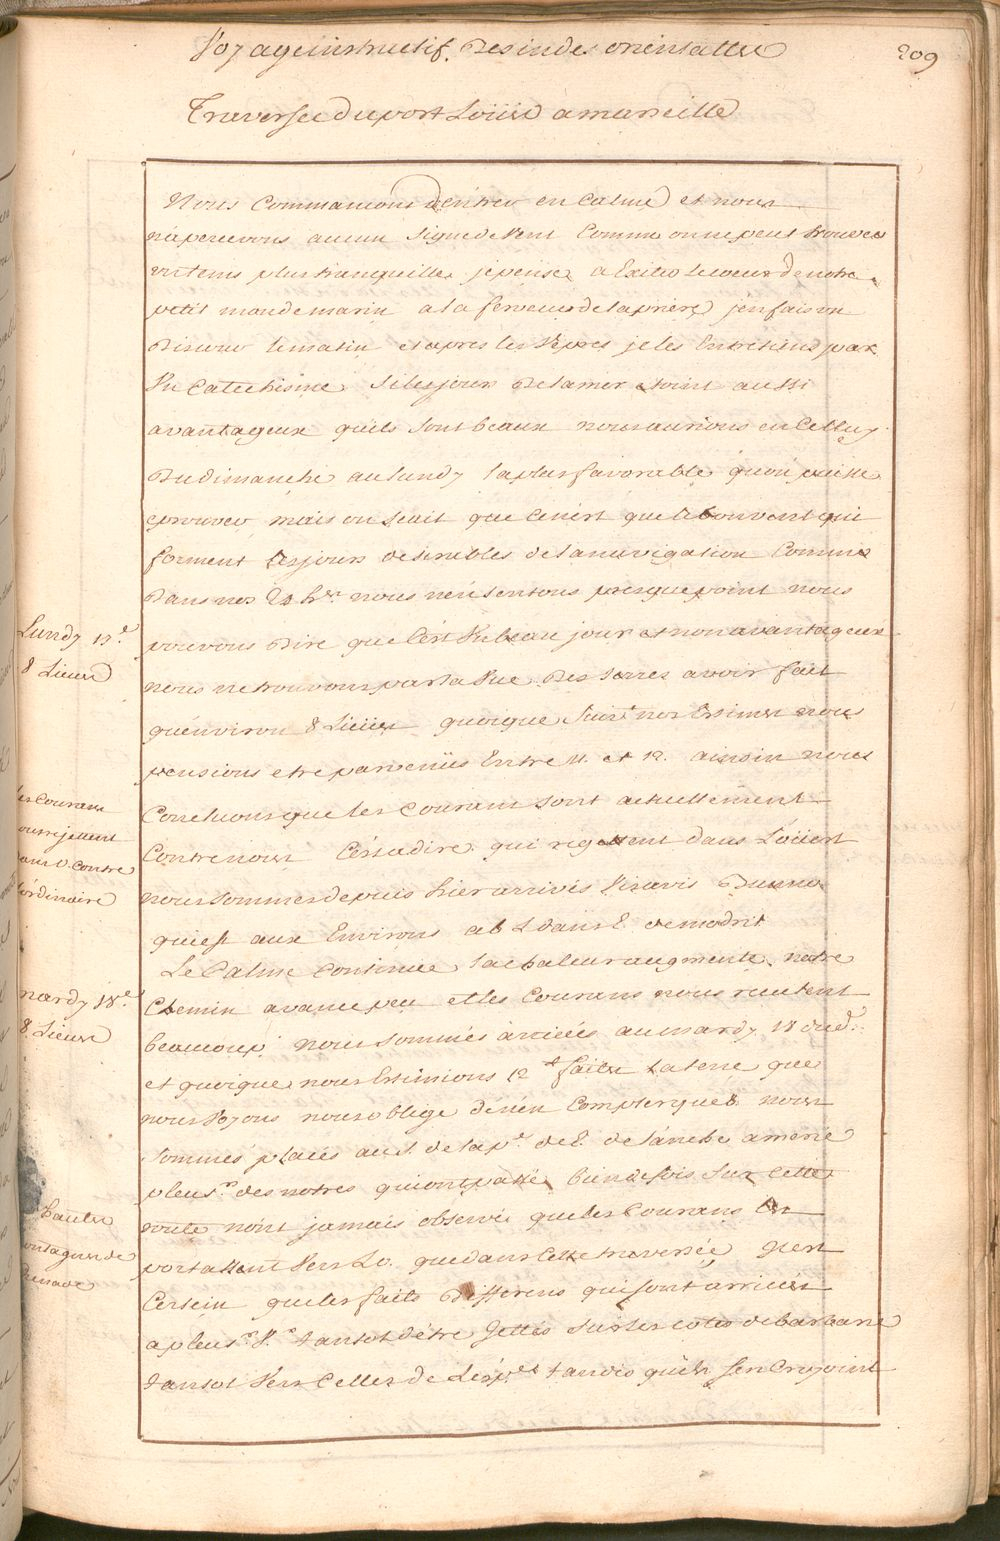 Voyage instructif Des indes orientalles
209
Traversée du port Loüis a marseille
Nous Commancions d'entrer en Calme et nous
n'apercevons aucun signe de Vent Comme on ne peut trouver
un tems plus tranquille, je pense a Exiter le coeur de notre
petit monde marin a la ferveur de la priere, j'en fais un
Discour le matin et apres les Vepres je les Entretiens par
Vn Catechisme. Si les jours De la mer etoint aussi
avantageux qu'ils sont beaux nous aurions eu Celluy
Du dimanche au lundy la plus favorable qu'on puisse
eprouver, mais on scait que C'est que le bon vent qui
forment les jours desirables de la navigation Comme
Dans nos 24 hrs nous n'en sentons presque point nous
Lundy 17e
pouvons Dire que C'est Vn beau jour et non avantageux
8 Lieues
nous ne trouvons par la Vue Des terres avoir fait
qu'environ 8 Lieües quoique suivt nos Estimes nous
pensions etre parvenües Entre 11. et 12. ainsin nous
les Courans
Concluons que les Courans sont actuellement
nous rejettent
Contre nous C'est a dire qui regettent dans L'oüest
dans O. Contre
l'ordinaire
nous sommes depuis hier arrivés Visavis
qui est aux Environs a 6 L dans E de modrit
Le Calme Continue, la chaleur augmente, notre
mardy 18e
Chemin avance peu et les Courans nous reculent
8 Lieues
beaucoup. nous sommes arrivés au mardy 18 dud.
et quoique nous Estimions 12 L faites La terre que
nous Voyons nous oblige d'en en Compter que 8 nous
sommes placés au S. de la pte de E. de
pleusrs des notres qui ont passé bien de fois sur Cette
hautes
route n'ont jamais observé que les Courans
montagnes de
portassent Vers Lo. que dans Cette traversée, il est
Grenade
Certein que les faits Differens qui sont arrivés
a pleusrs Vx tantot d'être Jettés sur les cotes de barbarie
tantot Vers Celles de tandis qu'ils s'en Croyoint